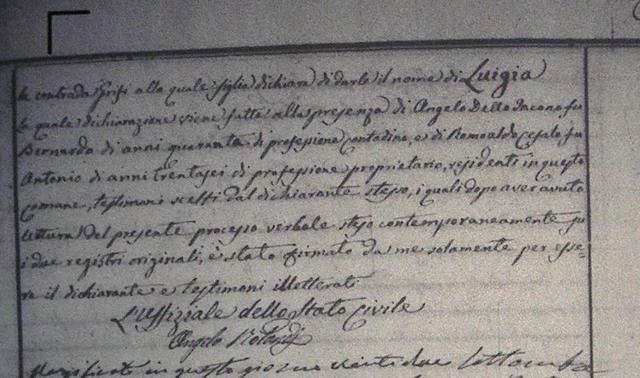 la contrada Grifi alla quale figlia dichiara di darle il nome di Luigia
la quale dichiarazione viene fatta alla presenza di Angelo Dello Iacono fu
Bernardo di anni quaranta di professione contadino, e di Romoaldo Cefalo, fu
Antonio di anni trentasei di professione proprietario, residenti in questo
comune, testimonj scelti dal dichiarante stesso, i quali dopo aver avuto
lettura del presente processo verbale steso contemporaneamente su
i due registri originali, è stato firmato da me solamente per esse-
re il dichiarante e testimoni illetterati
L'uffiziale dello Stato Civile
Angelo
in questo giorno venti due